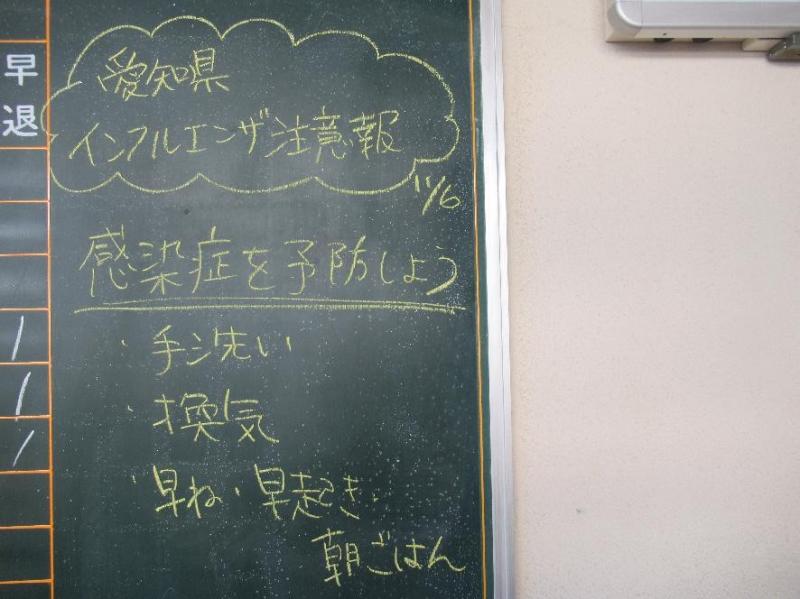 早退
愛知県
インフルエンザ注意報
11/6
感染症を予防しよう
・手洗い
・換気
・早ね・早起き・
朝ごはん
/
/
/